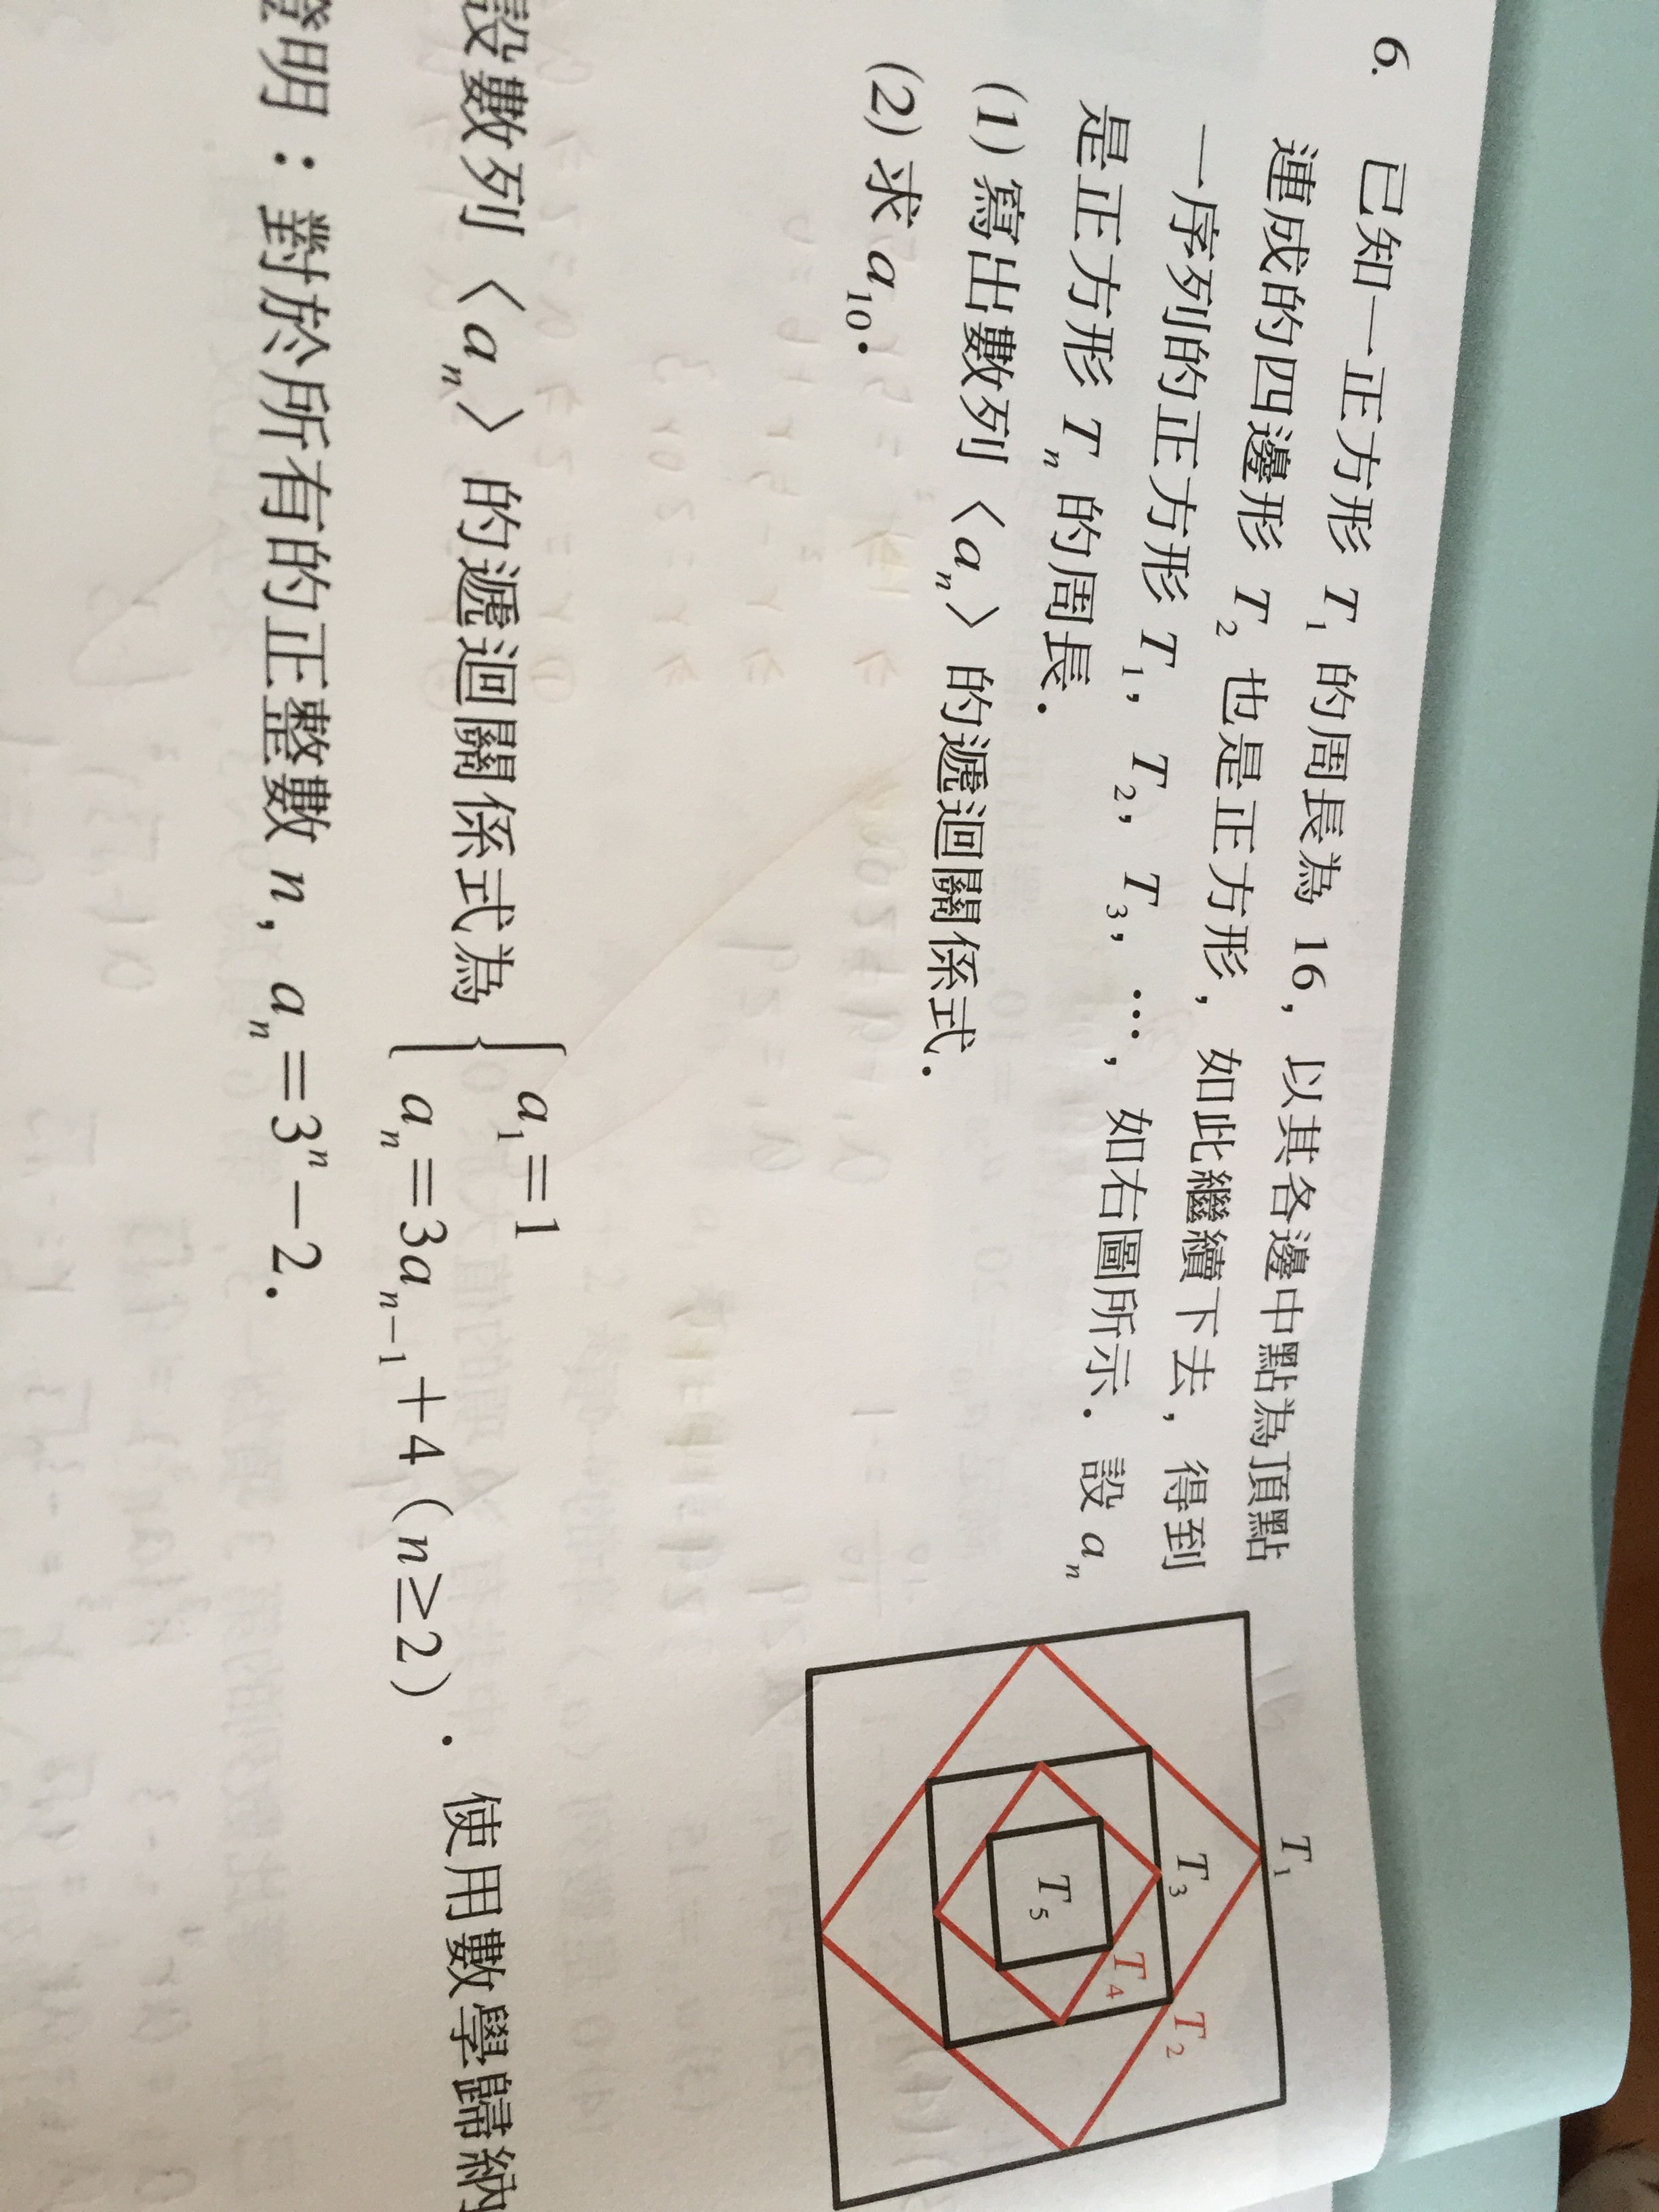 6. 已知一正方形 T₁ 的周長為 16，以其各邊中點為頂點
連成的四邊形 T₂ 也是正方形，如此繼續下去，得到
一序列的正方形 T₁，T₂，T₃，…，如右圖所示．設 aₙ
是正方形 Tₙ 的周長．
(1) 寫出數列〈aₙ〉的遞迴關係式．
(2) 求 a₁₀．
T₁
T₃
T₂
T₄
T₅
設數列〈aₙ〉的遞迴關係式為 { a₁＝1
aₙ＝3aₙ₋₁＋4（n≥2）．使用數學歸納
證明：對於所有的正整數 n，aₙ＝3ⁿ－2．